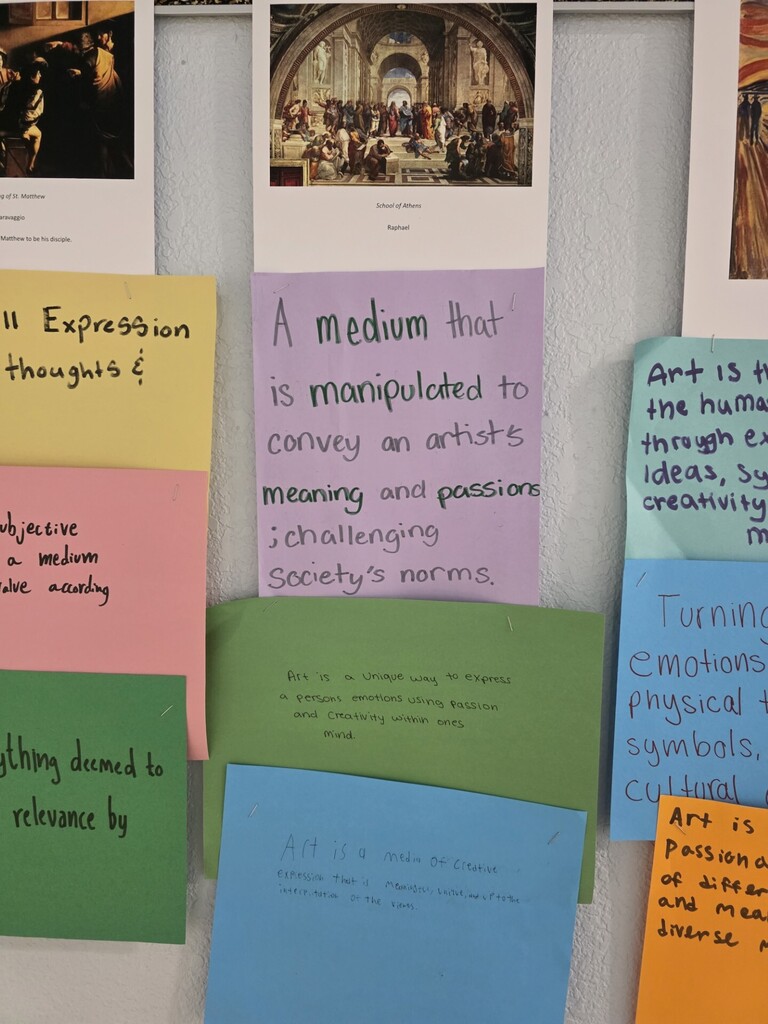 g of St. Matthew
aravaggio
Matthew to be his disciple.
ll Expression
thoughts &
ubjective
a medium
alue according
ything deemed to
relevance by
School of Athens
Raphael
A medium that
is manipulated to
convey an artist's
meaning and passions
; challenging
society's norms.
Art is a unique way to express
a persons emotions using passion
and creativity within ones
mind.
Art is a media of creative
expression that is meaningful, unique, and up to the
interpretation of the
Art is th
the huma
through ex
Ideas, Sy
creativity
m
Turning
emotions
physical t
symbols,
cultural
Art is
Passiona
of differ
and mea
diverse m